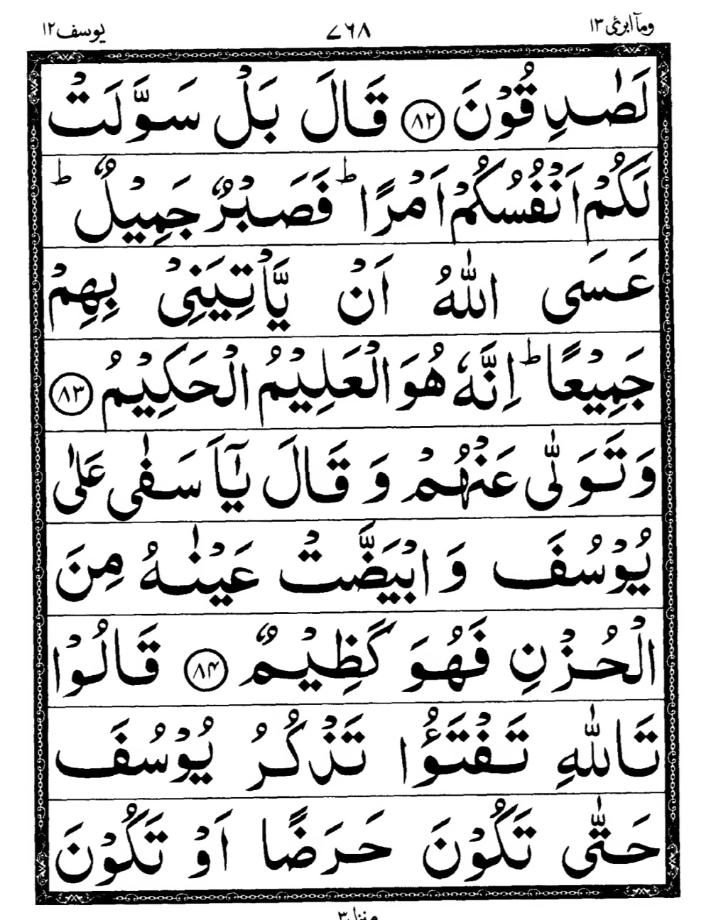 وَمَآ اُبَرِّئُ ١٣ ٧٦٨ يوسف ١٢
لَصٰدِقُوْنَ ﴿٨٢﴾ قَالَ بَلْ سَوَّلَتْ
لَكُمْ اَنْفُسُكُمْ اَمْرًا ؕ فَصَبْرٌ جَمِيْلٌ ؕ
عَسَى اللّٰهُ اَنْ يَّاْتِيَنِيْ بِهِمْ
جَمِيْعًا ؕ اِنَّهٗ هُوَ الْعَلِيْمُ الْحَكِيْمُ ﴿٨٣﴾
وَتَوَلّٰى عَنْهُمْ وَ قَالَ يٰۤاَسَفٰى عَلٰى
يُوْسُفَ وَ ابْيَضَّتْ عَيْنٰهُ مِنَ
الْحُزْنِ فَهُوَ كَظِيْمٌ ﴿٨٤﴾ قَالُوْا
تَاللّٰهِ تَفْتَؤُا تَذْكُرُ يُوْسُفَ
حَتّٰى تَكُوْنَ حَرَضًا اَوْ تَكُوْنَ
منزل ٣